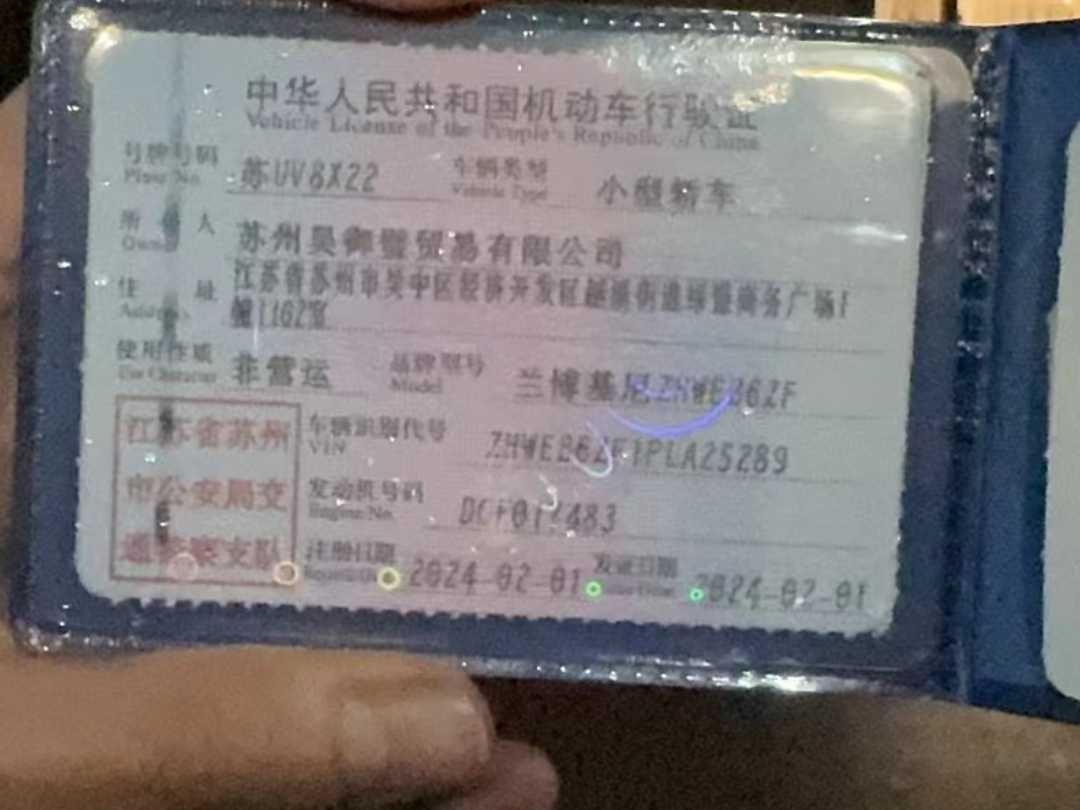 中华人民共和国机动车行驶证
Vehicle License of the People's Republic of China
号牌号码 苏UV8X22 车辆类型 小型轿车
Plate No. Vehicle Type
所有人 苏州昊御暨贸易有限公司
Owner
住址 江苏省苏州市吴中区经济开发区越溪街道 商务广场1
Address 幢1162室
使用性质 非营运 品牌型号 兰博基尼ZHWEB6ZF
Use Character Model
江苏省苏州 车辆识别代号 ZHWEB6ZF1PLA25289
VIN
市公安局交 发动机号码
Engine No.
通警察支队 注册日期 2024-02-01 发证日期 2024-02-01
Issue Date